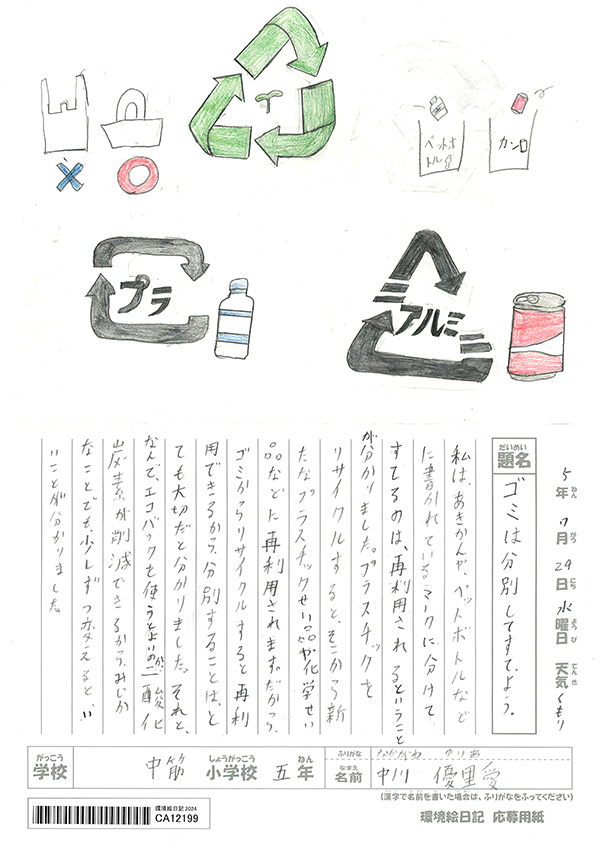 ペットボトル
カン
プラ
アルミ
5年7月24日水曜日 天気くもり
ねん がつ にち ようび てんき
だいめい
題名
ゴミは分別してすてよう。
私は、あきかんや、ペットボトルなど
に書かれているマークに分けて、
すてるのは、再利用されるということ
が分かりました。プラスチックを
リサイクルすると、そこから新
たなプラスチックせい品や化学せい
品などに再利用されます。だから、
ゴミからリサイクルすると再利
用できるから、分別することは、と
ても大切だと分かりました。それと、
なんで、エコバックを使うとよいのかは、二酸化
炭素が削減できるから、みじか
なことでも、少しずつ変えると、いい
いことが分かりました
がっこう しょうがっこう ねん
学校 中筋 小学校 五年
ふりがな なかがわ ゆりあ
なまえ
名前 中川 優里愛
(漢字で名前を書いた場合は、ふりがなをふってください)
環境絵日記2024
CA12199
環境絵日記 応募用紙